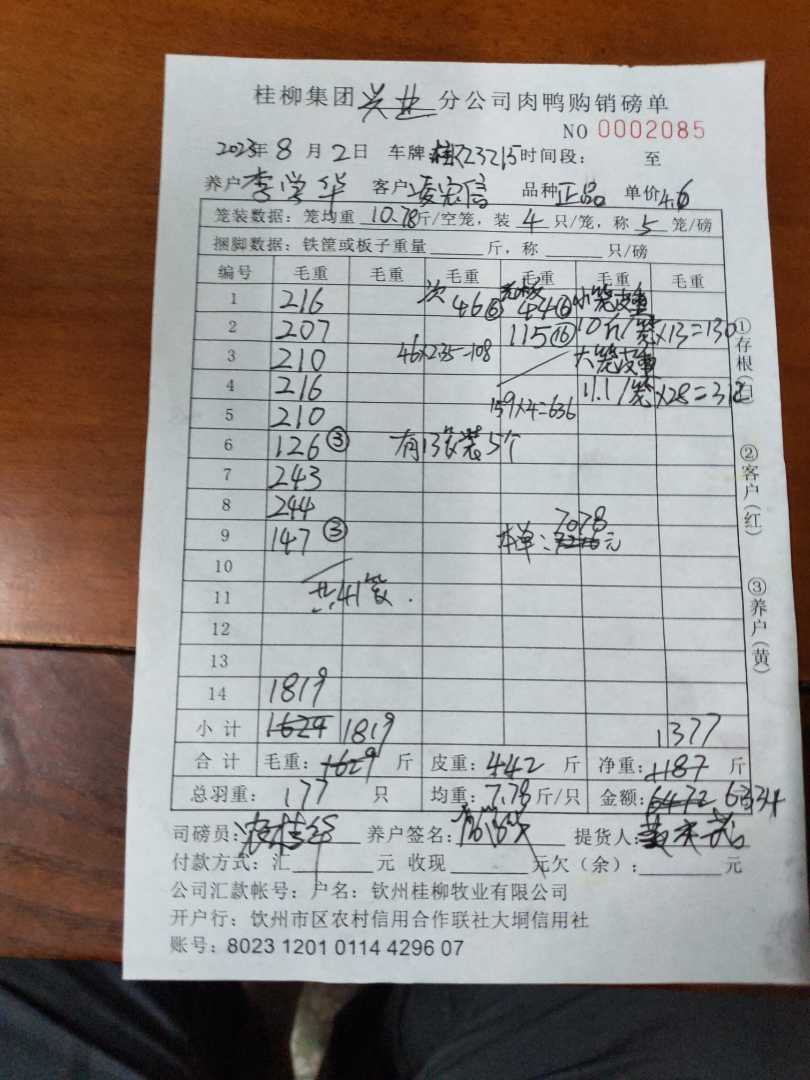 桂柳集团 兴业 分公司肉鸭购销磅单
NO 0002085
2023年 8 月 2 日 车牌 桂 23215 时间段： 至
养户 李学华 客户 凌宏信 品种 正品 单价 4.6
笼装数据：笼均重 10.78 斤/空笼，装 4 只/笼，称 5 笼/磅
捆脚数据：铁筐或板子重量 斤，称 只/磅
编号 毛重 毛重 毛重 毛重 毛重 毛重
1 216 次 46⑥ 44⑥ 小笼皮重
2 207 115⑯ 10斤/笼×13=130
3 210 46×2.35=108 大笼皮重
4 216 159×4=636 11.1/笼×28=312
5 210
6 126③ 有13笼装5个
7 243
8 244 7078
9 147③ 本单： 元
10
11 共：41笼.
12
13
14 1819
小 计 1624 1819 1377
合 计 毛重：1629 斤 皮重：442 斤 净重：1187 斤
总羽重： 177 只 均重：7.78 斤/只 金额：6472 6334
司磅员： 养户签名： 提货人：
付款方式：汇 元 收现 元欠（余）： 元
公司汇款帐号：户名：钦州桂柳牧业有限公司
开户行：钦州市区农村信用合作联社大垌信用社
账号：8023 1201 0114 4296 07
①存根(白)
②客户(红)
③养户(黄)